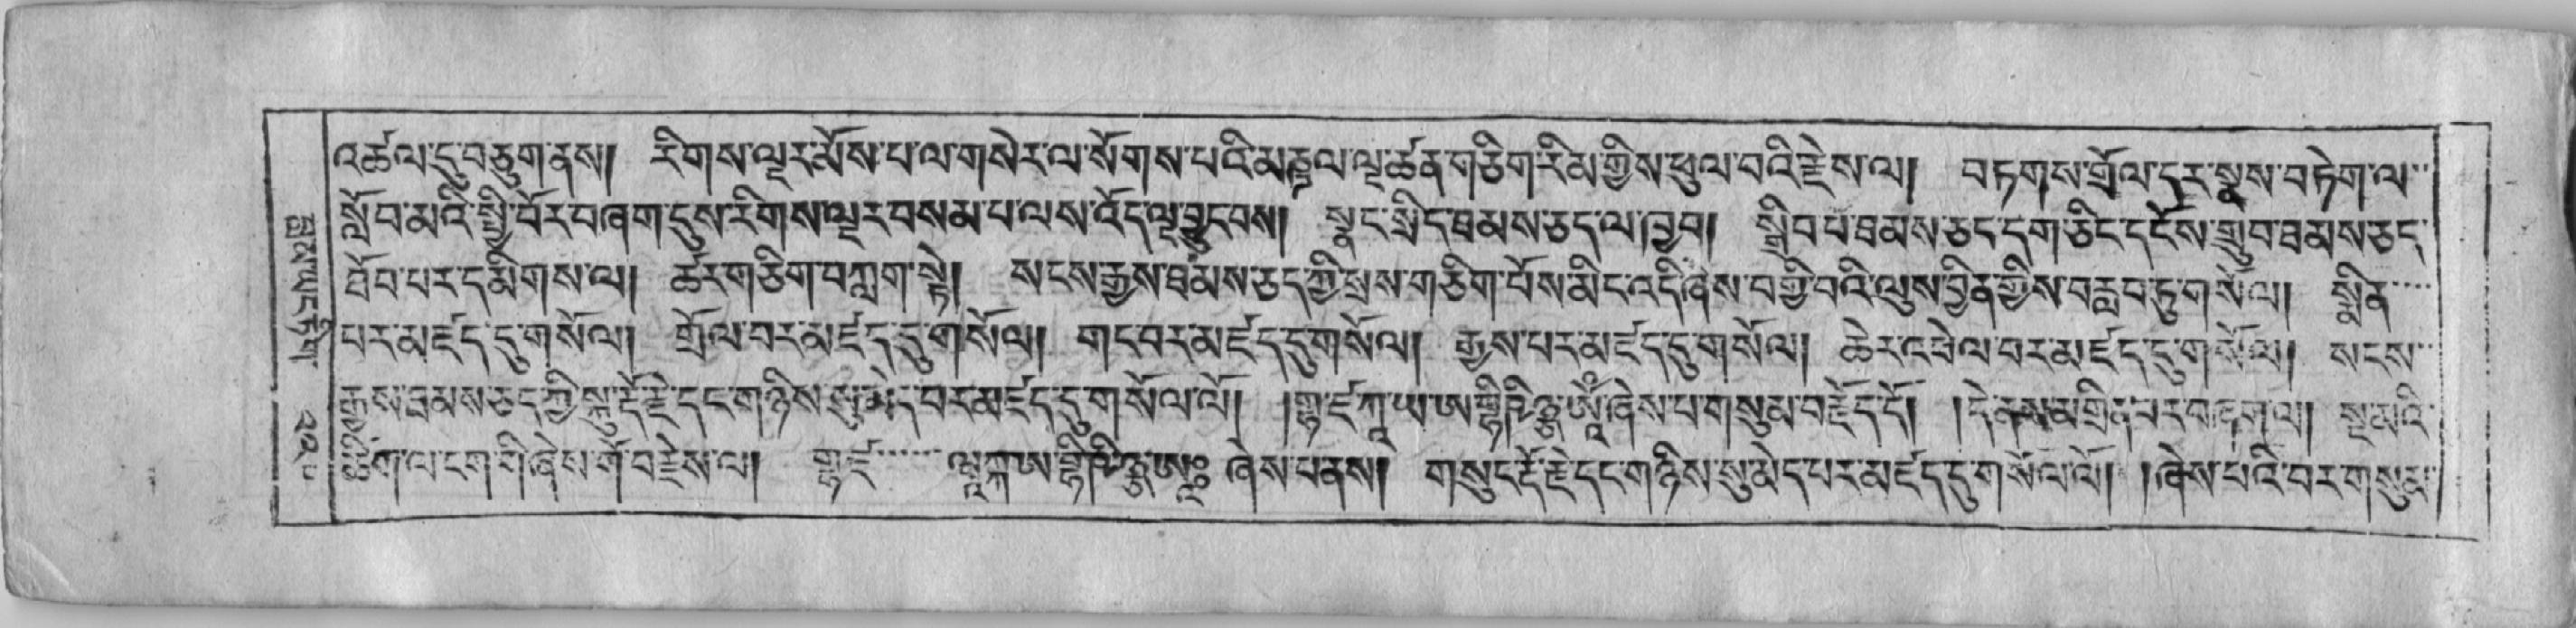 འཚལ་དུ་བཅུག་ནས། རིགས་ལྔར་མོས་པ་ལ་གསེར་ལ་སོགས་པའི་མཎྜལ་ལྔ་ཚན་གཅིག་རིམ་གྱིས་ཕུལ་བའི་རྗེས་ལ། བཏགས་གྲོལ་དར་སྣས་བཏེག་ལ་
སློབ་མའི་སྤྱི་བོར་བཞག་དུས་རིགས་ལྔར་བསམ་པ་ལས་འོད་ལྔ་བྱུང་བས། སྣང་སྲིད་ཐམས་ཅད་ལ་ཁྱབ། སྒྲིབ་པ་ཐམས་ཅད་དག་ཅིང་དངོས་གྲུབ་ཐམས་ཅད་
ཐོབ་པར་དམིགས་ལ། ཚར་གཅིག་བཀླག་སྟེ། སངས་རྒྱས་ཐམས་ཅད་ཀྱི་སྲས་གཅིག་པོས་མིང་འདི་ཞེས་བགྱི་བའི་ལུས་བྱིན་གྱིས་བརླབ་ཏུ་གསོལ། སྨིན་
པར་མཛད་དུ་གསོལ། གྲོལ་བར་མཛད་དུ་གསོལ། གང་བར་མཛད་དུ་གསོལ། རྒྱས་པར་མཛད་དུ་གསོལ། ཆེར་འཕེལ་བར་མཛད་དུ་གསོལ། སངས་
རྒྱས་ཐམས་ཅད་ཀྱི་སྐུ་རྡོ་རྗེ་དང་གཉིས་སུ་མེད་པར་མཛད་དུ་གསོལ་ལོ། །ཞེས་པ་གསུམ་བརྗོད་དོ། །དེ་ནས་མགྲིན་པར་བཞག་ལ། སྔ་མའི་
ཚིག་ལ་ངག་གི་ཞེས་གོ་བརྗེས་ལ། ཞེས་པ་ནས། གསུང་རྡོ་རྗེ་དང་གཉིས་སུ་མེད་པར་མཛད་དུ་གསོལ་ལོ། །ཞེས་པའི་བར་གསུམ་